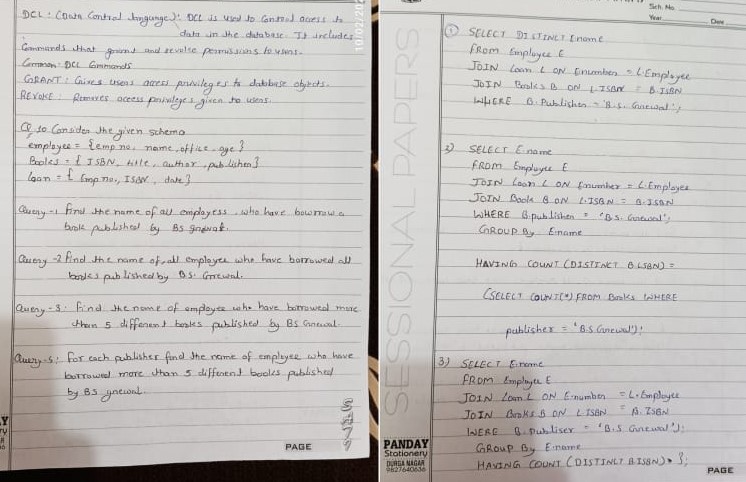 DCL : (Data Control language): DCL is used to Control access to
data in the database. It includes
Commands that grant and revoke permissions to users.
Common DCL Commands
GRANT : Gives users access privileges to database objects.
REVOKE : Removes access privileges given to users.
Q 10 Consider the given schema
employee = {emp no, name, office, age}
Books = { ISBN, title, author, publisher}
loan = { Emp no, ISBN, date}
Query-1 find the name of all employess who have bowrrow a
book published by BS
Query-2 find the name of all employee who have borrowed all
books published by BS. Grrewal.
Query-3: Find the name of employee who have borrowed more
than 5 different bookes published by BS Grewal.
Query-5: For each publisher find the name of employee who have
borrowed more than 5 different books published
by BS
PAGE
Sch. No.
Year
Date
SESSIONAL PAPERS
① SELECT DISTINCT E.name
FROM Employee E
JOIN Loan L ON E.number = L.Employee
JOIN Books B ON L.ISBN = B.ISBN
WHERE B.Publisher = 'B.S. Grewal';
2) SELECT E.name
FROM Employee E
JOIN Loan L ON E.number = L.Employee
JOIN Book B ON L.ISBN = B.ISBN
WHERE B.publisher = 'B.S. Grewal';
GROUP By E.name
HAVING COUNT (DISTINCT B.ISBN) =
(SELECT COUNT(*) FROM Books WHERE
publisher = 'B.S Grewal');
3) SELECT E.name
FROM Employee E
JOIN Loan L ON E.number = L.Employee
JOIN Books B ON L.ISBN = B.ISBN
WERE B.Publiser = 'B.S Grewal');
GROUP By E.name
HAVING COUNT (DISTINCT B.ISBN)
PANDAY
Stationery
DURGA NAGAR
9827640636
PAGE